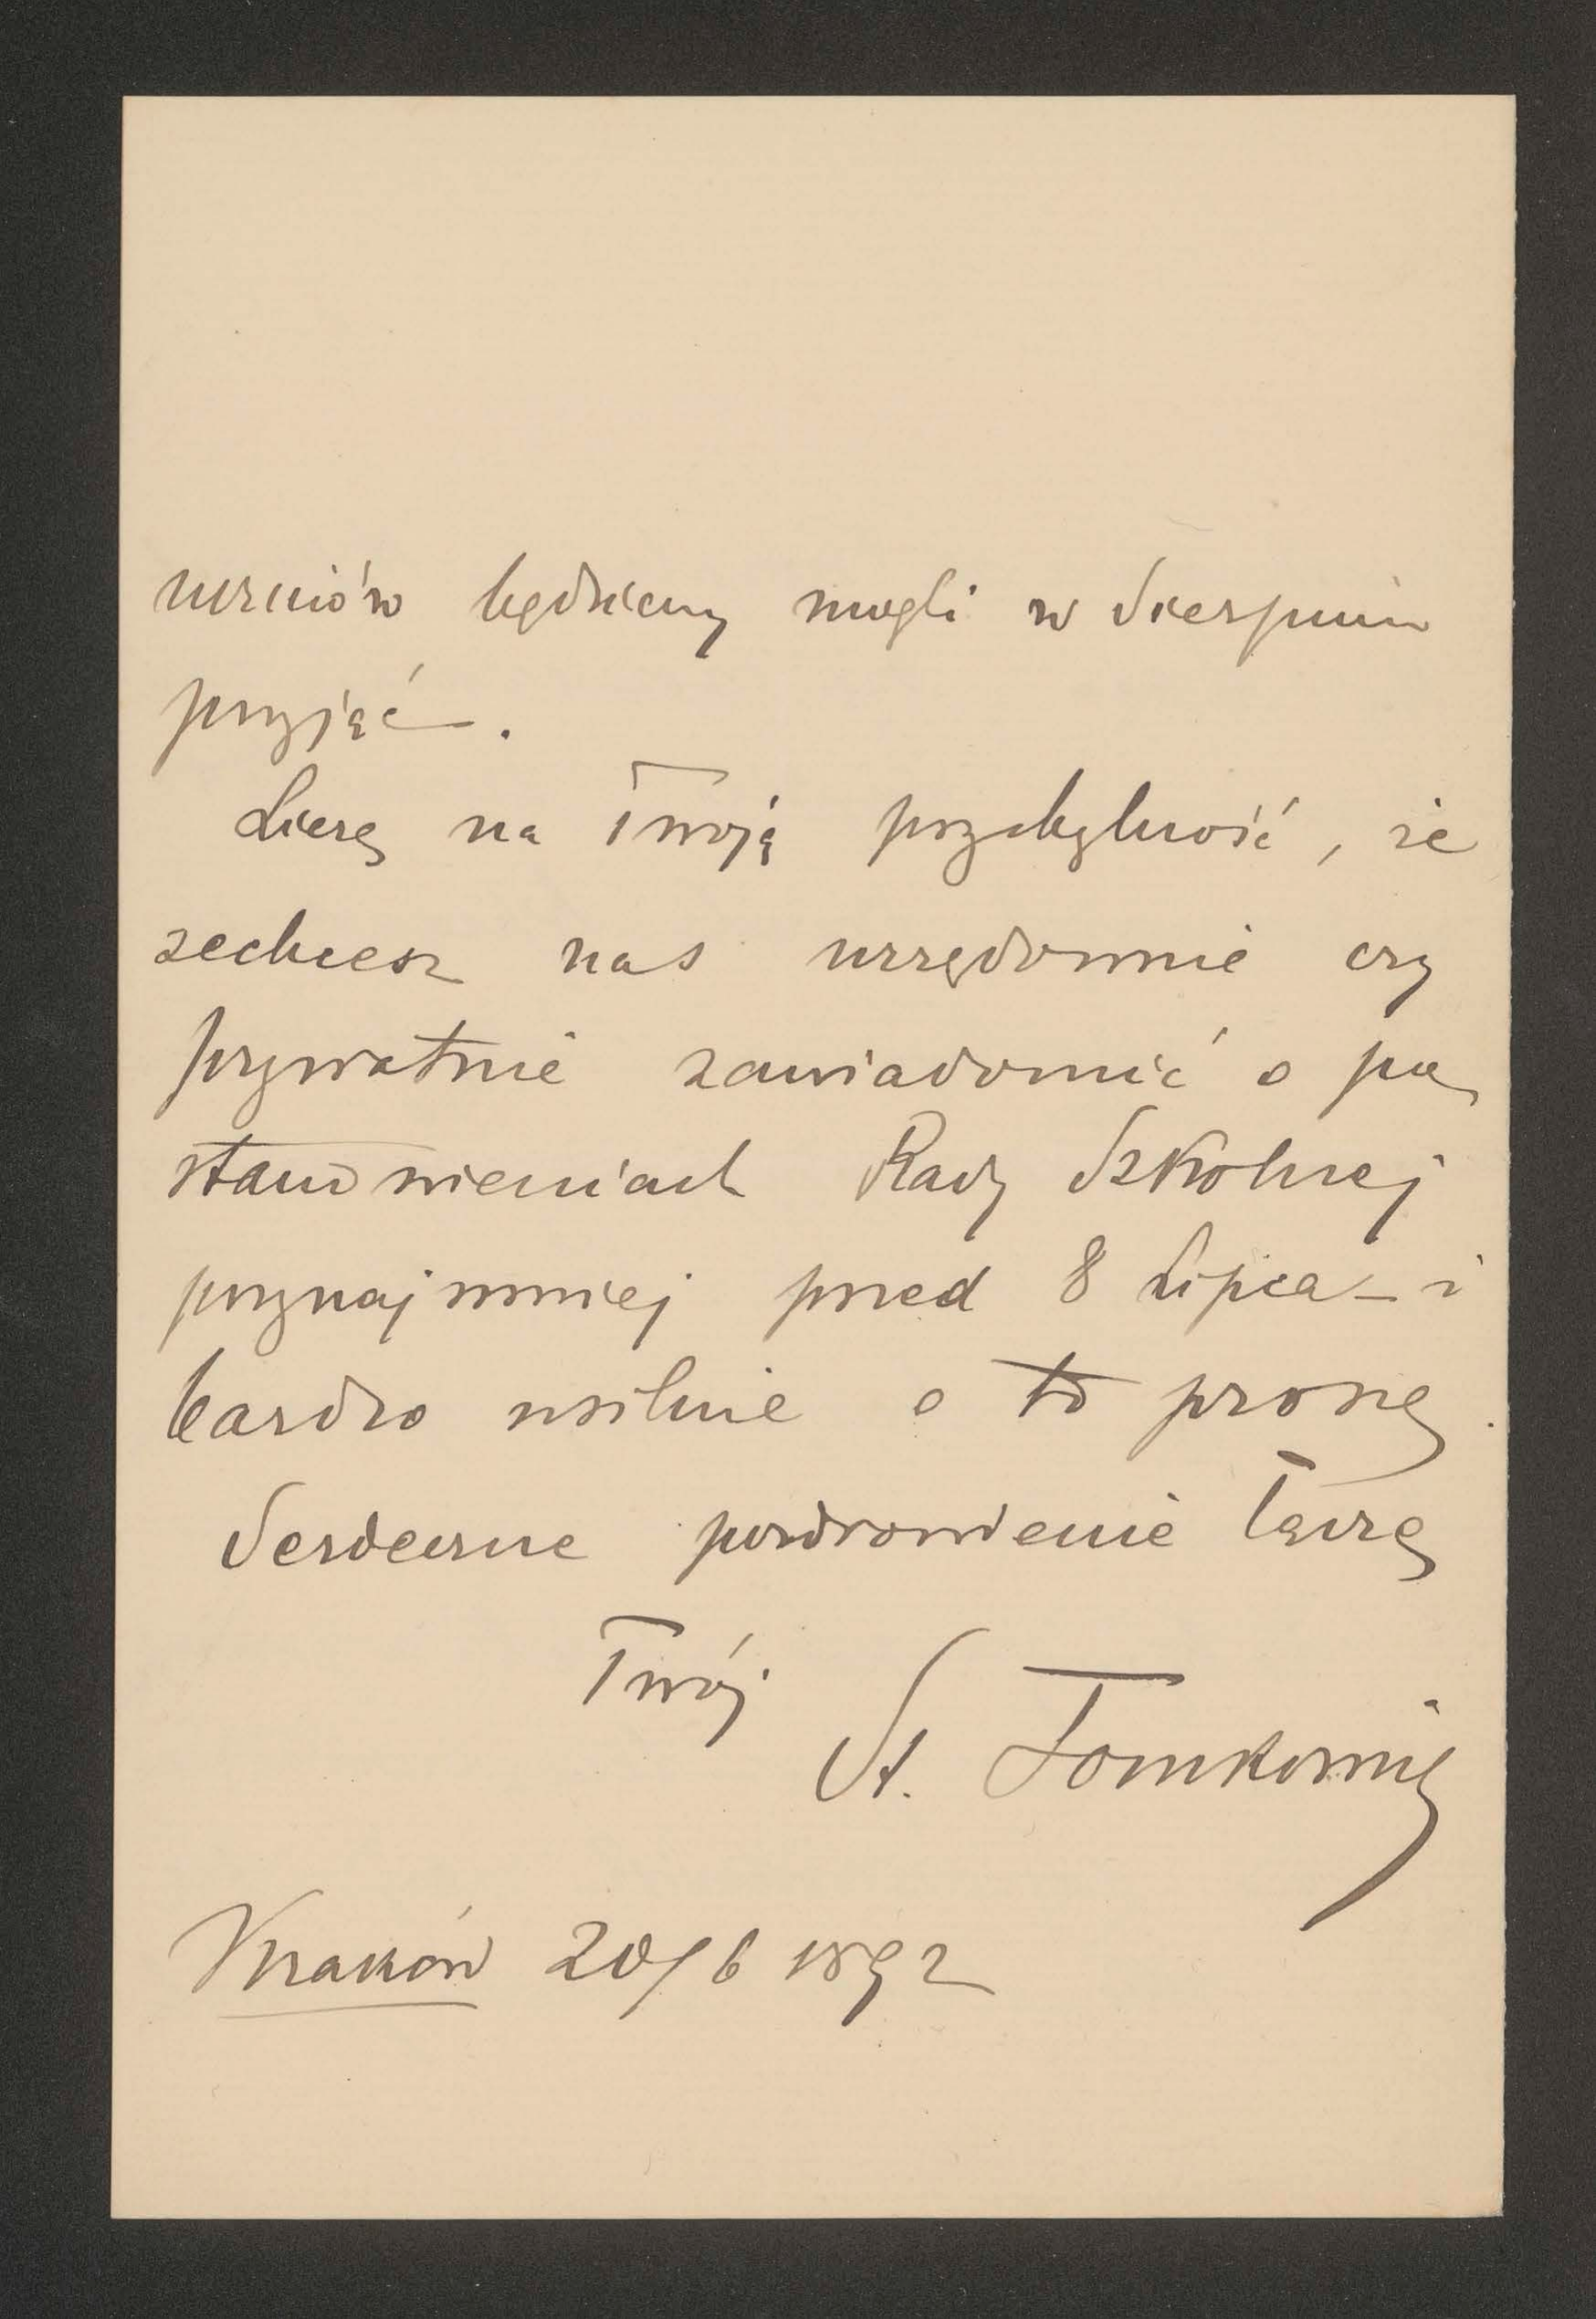 uczniów będziemy mogli w Sierpniu
przyjąć.
Liczę na Twoją przychylność, że
zechcesz nas urzędownie czy
prywatnie zawiadomić o po
stanowieniach Rady Szkolnej
przynajmniej przed 8 Lipca - i
bardzo usilnie o to proszę.
Serdeczne pozdrowienie łączę
Twój
St. Tomkowicz
Kraków 20/6 1892